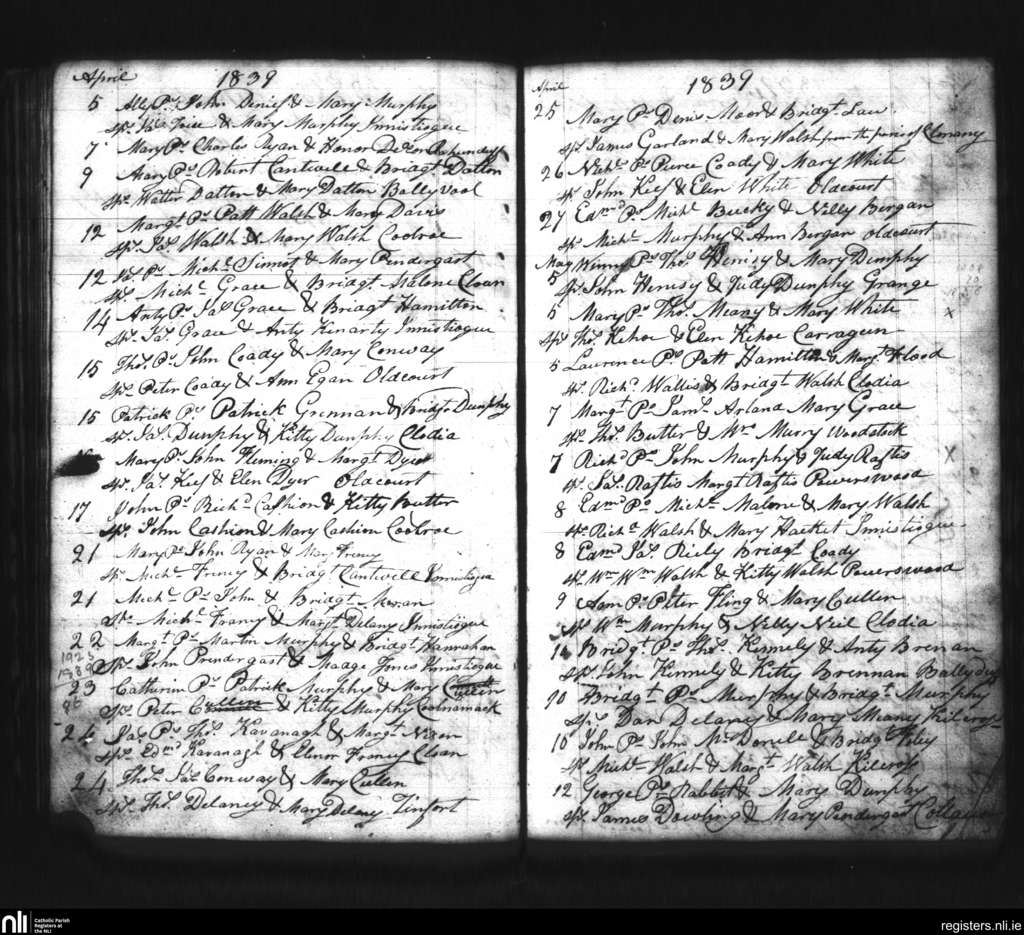 April 1839
5 Ally Ps John Denief & Mary Murphy
Sps Jas Price & Mary Murphy Innistiogue
7 Mary Ps Charles Ryan & Honor
9 Mary Ps Robert Cantwell & Bridgt Dalton
Sps Walter Dalton & Mary Dalton Ballyvool
12 Margt Ps Patt Walsh & Mary Davis
Sps Jas Walsh & Mary Walsh Coolroe
12 Jas Ps Michl Sinnot & Mary Pendergast
Sps Michl Grace & Bridgt Malone Cloan
14 Anty Ps Jas Grace & Bridgt Hamilton
Sps Js Grace & Anty Kinarty Innistiogue
15 Thos Ps John Coady & Mary Conway
Sps Peter Coady & Ann Egan Oldcourt
15 Patrick Ps Patrick Grennan & Bridgt Dunphy
Sps Jas Dunphy & Kitty Dunphy Clodia
Mary Ps John Fleming & Margt Dyer
Sps Jas Kief & Elen Dyer Oldcourt
17 John Ps Richd Cashion & Kitty Butler
Sps John Cashion & Mary Cashion Coolroe
21 Mary Ps John Ryan & Mary Freney
Sps Michl Freney & Bridgt Cantwell Innistiogue
21 Michl Ps John & Bridgt
Sps Michl Franey & Margt Delany Innistiogue
22 Margt Ps Martin Murphy & Bridgt Hanrahan
Sps John Prendergast & Madge Jones Innistiogue
23 Catharin Ps Patrick Murphy & Mary Cullen
Sps Peter & Kitty Murphy Coolnamack
24 Jas Ps Thos Kavanagh & Margt Nixon
Sps Edmd Kavanagh & Elenor Franey Cloan
24 Thos Jas Conway & Mary Cullen
Sps Thos Delaney & Mary Delany Tinfort
April 1839
25 Mary Ps Denis Moor & Bridgt Law
Sps James Garland & Mary Walsh from the parish of
26 Nichs Ps Pierce Coady & Mary White
Sps John Kief & Elen White Oldcourt
27 Edmd Ps Michl Bucky & Nelly Bergan
Sps Michl Murphy & Ann Bergan Oldcourt
May Ps Thos Henisy & Mary Dunphy
5 Sps John Henisy & Judy Dunphy Grange
5 Mary Ps Thos Meany & Mary White
Sps Thos Kehoe & Elen Kehoe Carrageen
5 Laurence Ps Patt Hamilton & Margt Flood
Sps Richd Wallis & Bridgt Walsh Clodia
7 Margt Ps Jams Arland Mary Grace
Sps Thos Butler & Wm Murry Woodstock
7 Richd Ps John Murphy & Judy Raftis
Sps Jas Raftis Margt Raftis Powerswood
8 Edmd Ps Michl Malone & Mary Walsh
Sps Richd Walsh & Mary Hacket Innistiogue
8 Edmd Jas Riely Bridgt Coady
Sps Wm Wm Walsh & Kitty Walsh Powerswood
9 Ps Peter Fling & Mary Cullen
Sps Wm Murphy & Nelly Neil Clodia
Bridgt Ps Thos Kennely & Anty Brenan
Sps John Kennely & Kitty Brennan
10 Bridgt Ps Murphy & Bridgt Murphy
Sps Dan Delaney & Mary Meany Kilcross
10 John Ps John McDonell & Bridgt Foley
Sps Michl Walsh & Margt Walsh Kilcross
12 George Ps Rabbit & Mary Dunphy
Sps James Dowling & Mary Pendergast
nli
Catholic Parish
Registers at
the NLI
registers.nli.ie